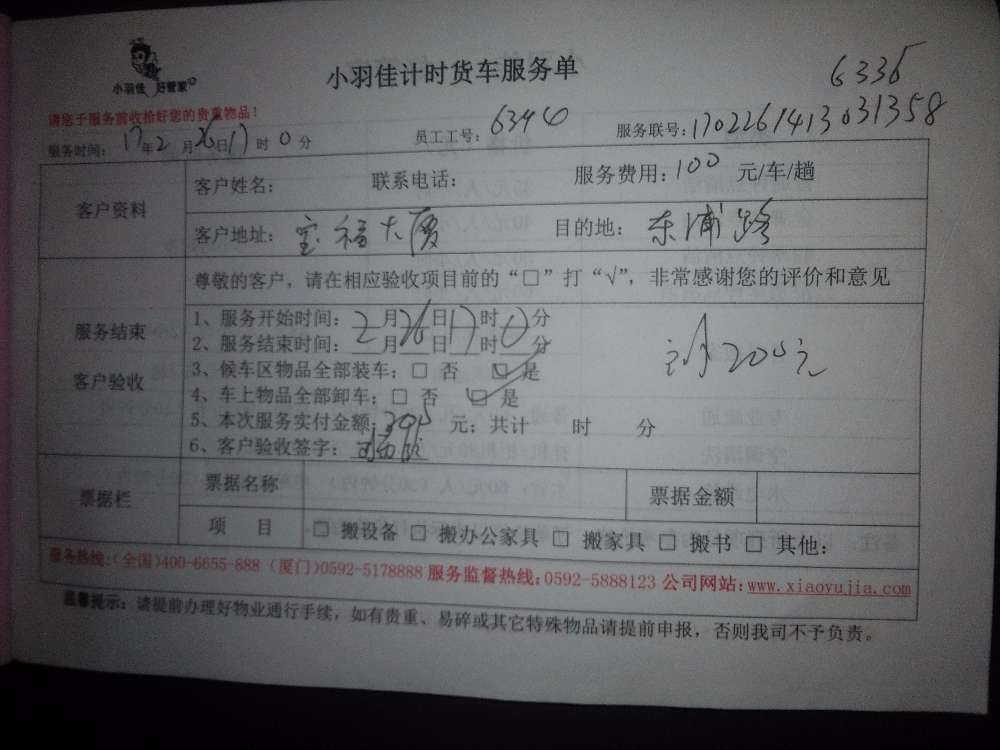 小羽佳 好管家
小羽佳计时货车服务单
6335
请您于服务前收拾好您的贵重物品！
服务时间：17年2月26日17时0分 员工工号：6344 服务联号：1702261413031358
客户资料
客户姓名： 联系电话： 服务费用：100 元/车/趟
客户地址：宝福大厦 目的地：东浦路
尊敬的客户，请在相应验收项目前的“□”打“√”，非常感谢您的评价和意见
服务结束
客户验收
1、服务开始时间：2月26日17时0分
2、服务结束时间：月 日 时 分
3、候车区物品全部装车：□ 否 □ 是
4、车上物品全部卸车：□ 否 □ 是
5、本次服务实付金额： 元；共计 时 分
6、客户验收签字：
200元
票据栏
票据名称 票据金额
项 目 □ 搬设备 □ 搬办公家具 □ 搬家具 □ 搬书 □ 其他：
服务热线：(全国)400-6655-888 (厦门)0592-5178888 服务监督热线：0592-5888123 公司网站：www.xiaoyujia.com
温馨提示：请提前办理好物业通行手续，如有贵重、易碎或其它特殊物品请提前申报，否则我司不予负责。